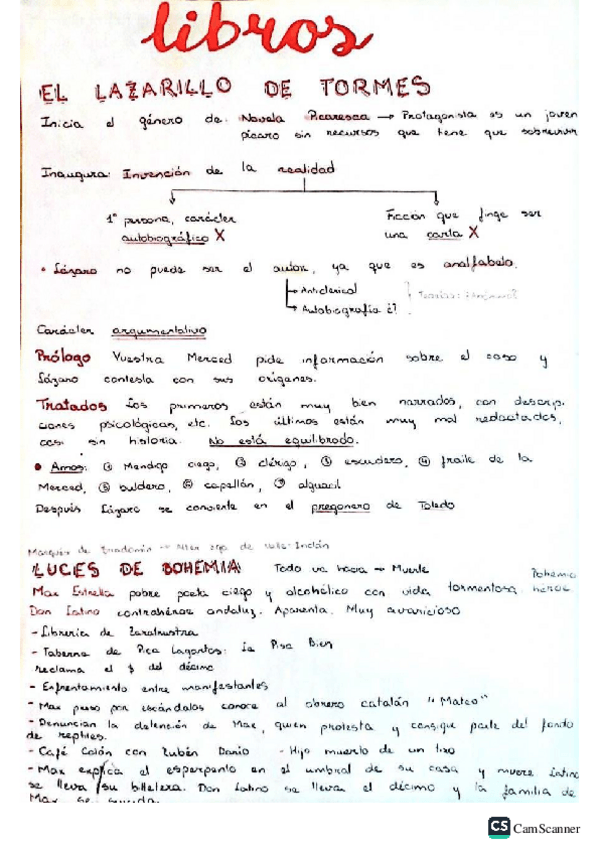 libros
EL LAZARILLO DE TORMES
Inicia el género de: Novela Picaresca → Protagonista es un joven
pícaro sin recursos que tiene que sobrevivir
Inaugura: Invención de la realidad
1ª persona, carácter
autobiográfico X
Ficción que finge ser
una carta X
• Lázaro no puede ser el autor, ya que es analfabeto.
→ Anticlerical
→ Autobiografía ¿?
Carácter argumentativo
Prólogo Vuestra Merced pide información sobre el caso y
Lázaro contesta con sus orígenes.
Tratados Los primeros están muy bien narrados, con descrip.
ciones psicológicas, etc. Los últimos están muy mal redactados,
casi sin historia. No está equilibrado.
• Amos: ① Mendigo ciego, ② clérigo, ③ escudero, ④ fraile de la
Merced, ⑤ buldero, ⑥ capellán, ⑦ alguacil
Después Lázaro se convierte en el pregonero de Toledo
Marqués de Bradomín → Alter ego de Valle-Inclán
LUCES DE BOHEMIA Todo va hacia → Muerte
Bohemio
Max Estrella pobre poeta ciego y alcohólico con vida tormentosa. héroe
Don Latino contrahéroe andaluz. Aparenta. Muy avaricioso
- Librería de Zaratustra
- Taberna de Pica Lagartos: la Pisa Bien
reclama el $ del décimo
- Enfrentamiento entre manifestantes
- Max preso por escándalos conoce al obrero catalán "Mateo"
- Denuncian la detención de Max, quien protesta y consigue parte del fondo
de reptiles.
- Café Colón con Rubén Darío - Hijo muerto de un tiro
- Max explica el esperpento en el umbral de su casa y muere. Latino
se lleva su billetera. Don Latino se lleva el décimo y la familia de
Max se suicida.
CS CamScanner